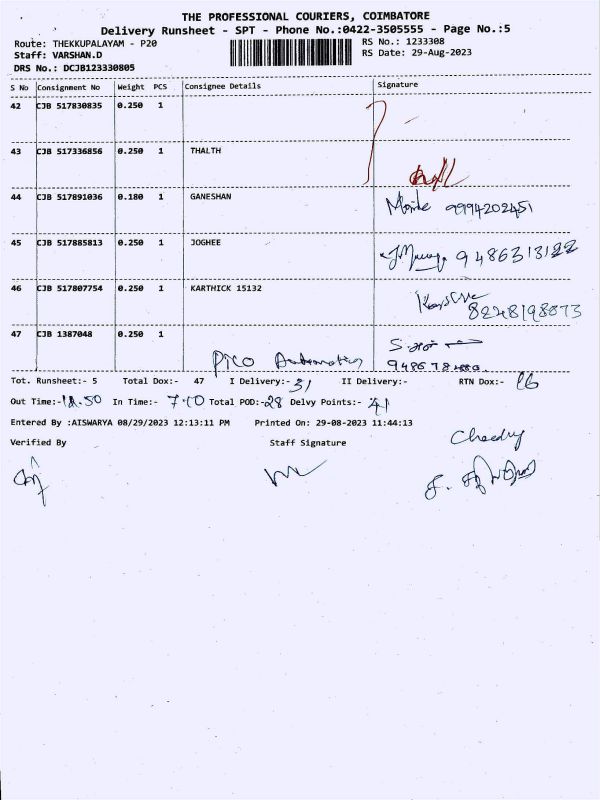 THE PROFESSIONAL COURIERS, COIMBATORE
Delivery Runsheet - SPT - Phone No.:0422-3505555 - Page No.:5
Route: THEKKUPALAYAM - P20
RS No.: 1233308
Staff: VARSHAN.D
RS Date: 29-Aug-2023
DRS No.: DCJB123330805
S No Consignment No Weight PCS Consignee Details Signature
42 CJB 517830835 0.250 1
43 CJB 517336856 0.250 1 THALTH
44 CJB 517891036 0.180 1 GANESHAN
9994202451
45 CJB 517885813 0.250 1 JOGHEE
9486313122
46 CJB 517807754 0.250 1 KARTHICK 15132
8248198073
47 CJB 1387048 0.250 1
Pico Automotive
Tot. Runsheet:- 5 Total Dox:- 47 I Delivery:- 31 II Delivery:- RTN Dox:- 16
Out Time:- In Time:- 7.10 Total POD:-28 Delvy Points:- 41
Entered By :AISWARYA 08/29/2023 12:13:11 PM Printed On: 29-08-2023 11:44:13
Verified By Staff Signature